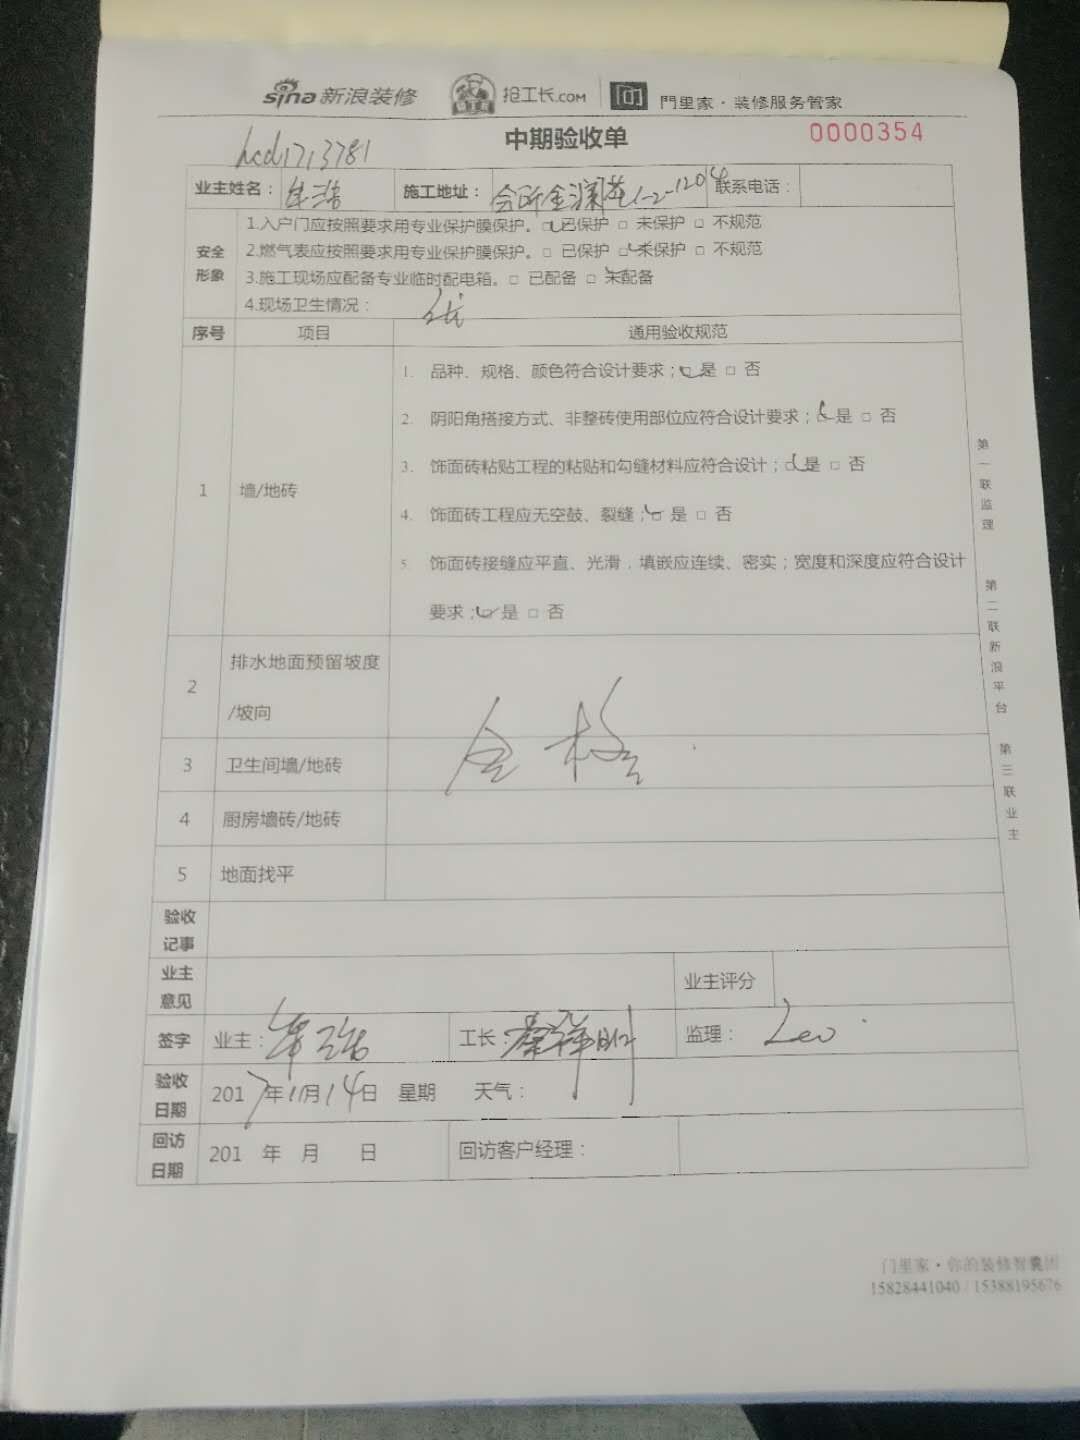 sina新浪装修 抢工长.COM 門里家·装修服务管家
中期验收单 0000354
hcd1713781
业主姓名： 施工地址： 1-2-1204 联系电话：
安全形象
1.入户门应按照要求用专业保护膜保护。□ 已保护 □ 未保护 □ 不规范
2.燃气表应按照要求用专业保护膜保护。□ 已保护 □ 未保护 □ 不规范
3.施工现场应配备专业临时配电箱。□ 已配备 □ 未配备
4.现场卫生情况：
序号 项目 通用验收规范
1 墙/地砖
1. 品种、规格、颜色符合设计要求；□ 是 □ 否
2. 阴阳角搭接方式、非整砖使用部位应符合设计要求；□ 是 □ 否
3. 饰面砖粘贴工程的粘贴和勾缝材料应符合设计；□ 是 □ 否
4. 饰面砖工程应无空鼓、裂缝；□ 是 □ 否
5. 饰面砖接缝应平直、光滑，填嵌应连续、密实；宽度和深度应符合设计
要求；□ 是 □ 否
2 排水地面预留坡度
/坡向
合格
3 卫生间墙/地砖
4 厨房墙砖/地砖
5 地面找平
验收
记事
业主
意见
业主评分
签字 业主： 工长：秦祥明 监理：Leo
验收
日期
2017年11月14日 星期 天气：
回访
日期
201 年 月 日 回访客户经理：
第一联监理 第二联新浪平台 第三联业主
门里家·你的装修智囊团
15828441040 / 15388195676